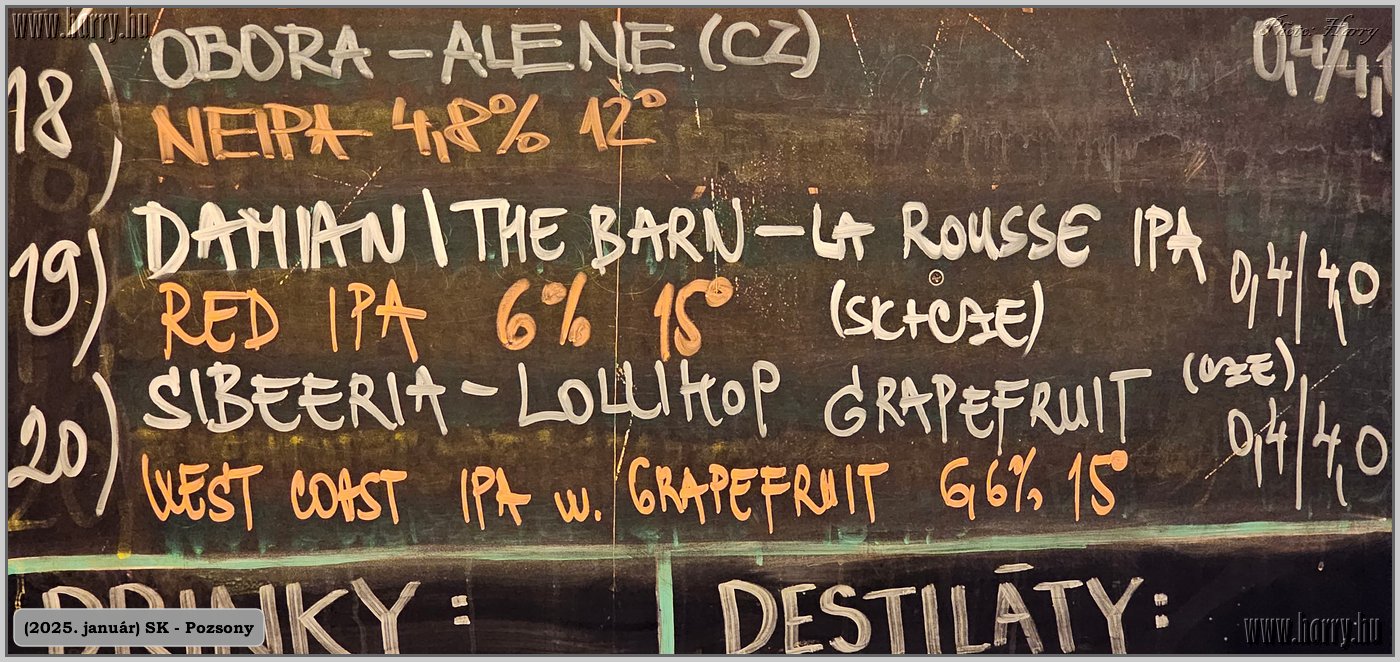 www.harry.hu
Photo: Harry
18) OBORA - ALENE (CZ) 0,4/4,1
NEIPA 4,8% 12°
19) DAMIAN / THE BARN - LA ROUSSE IPA 0,4/4,0
RED IPA 6% 15° (SK+CZE)
20) SIBEERIA - LOLLIHOP GRAPEFRUIT (CZE) 0,4/4,0
WEST COAST IPA w. GRAPEFRUIT 6,6% 15°
DRINKY: DESTILÁTY:
(2025. január) SK - Pozsony
www.harry.hu